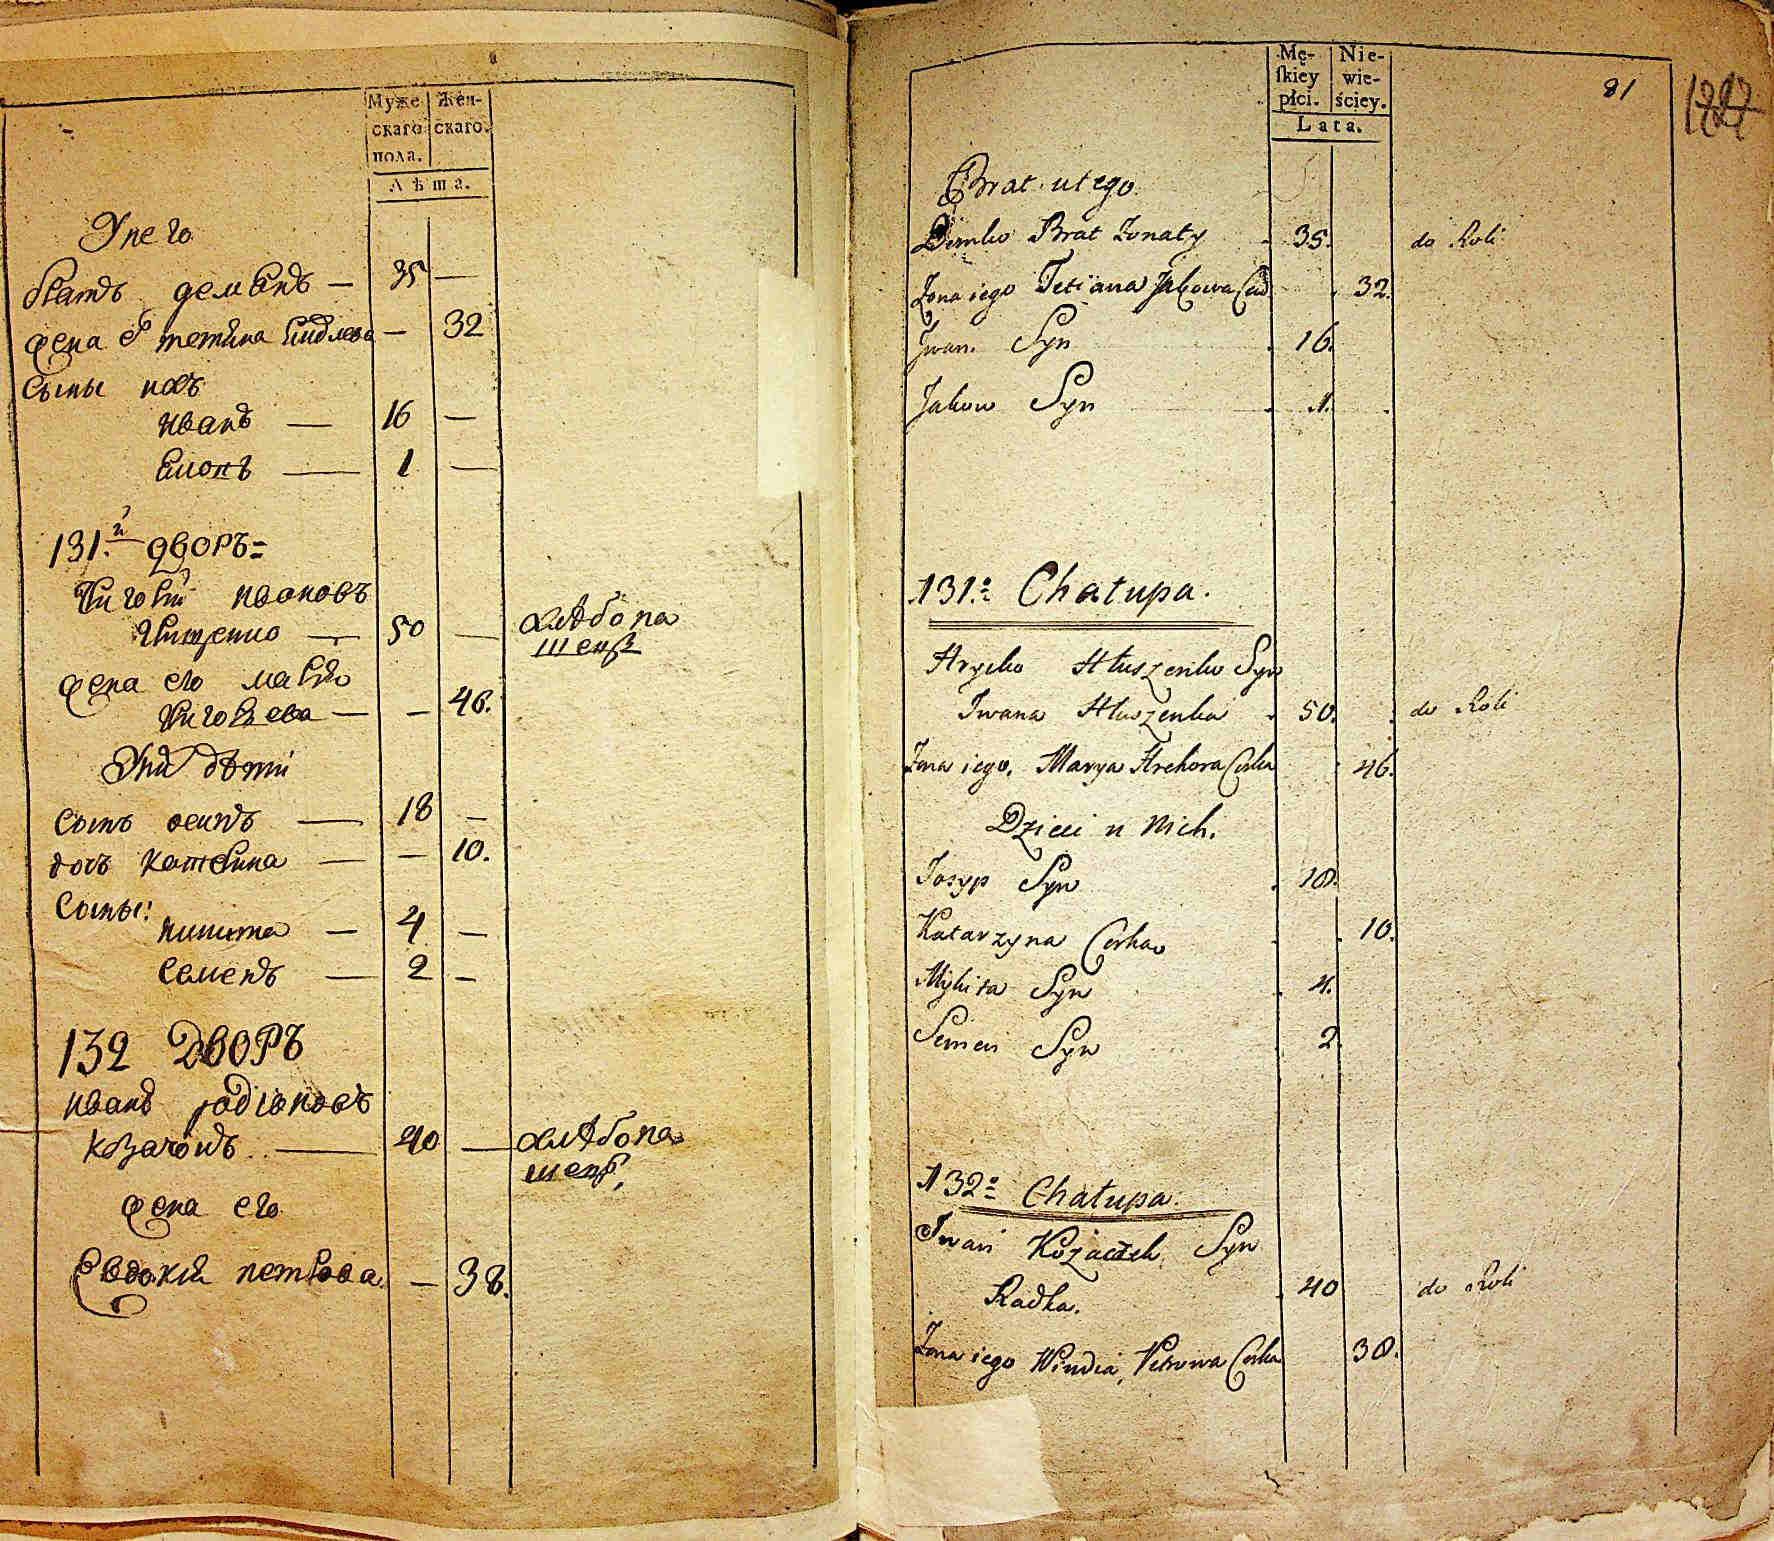 Муже
скаго
пола.
Жен-
скаго.
Лѣта.
У него
братъ демьянъ — 35 —
жена ег тетяна — 32
Сыны ихъ
иванъ — 16 —
— 1 —
131.й дворъ =
григорий ивановъ
— 50 — хлѣбопа
шецъ
жена его марья
григорьева — — 46.
У них дѣти
Сынъ осипъ — 18 —
дочь катерина — — 10.
Сыны:
никита — 4 —
Семенъ — 2 —
132 дворъ
иванъ родионовъ
козачокъ — 40 — хлѣбопа
шецъ,
жена его
Евдокия петрова — 38.
Mę-
ſkiey
płci.
Nie-
wie-
ściey.
Lata.
81
Brat u tego
Demko Brat Zonaty 35. do Roli
Zona iego Tetiana 32.
Jwan Syn 16.
Jakow Syn 1.
131o Chałupa.
Hrycko Hłuszenko Syn
Jwana Hłuszenka 50. do Roli
Zona iego. Marya Hrehora Corka 46.
Dzieci u Nich.
Josyp Syn 18.
Katarzyna Corka 10.
Mykita Syn 4.
Semen Syn 2
132o Chałupa.
Jwan Kozaczek Syn
Radka. 40 do Roli
Zona iego Petrowa Corka 38.